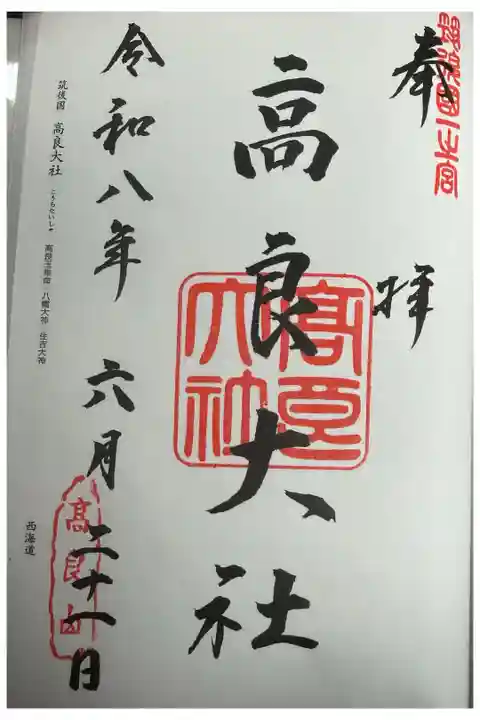 筑後國一之宮
奉拝
高良大社
髙良大社
令和八年六月二十一日
髙良山
筑後国 高良大社 こうらたいしゃ 高良玉垂命 八幡大神 住吉大神
西海道